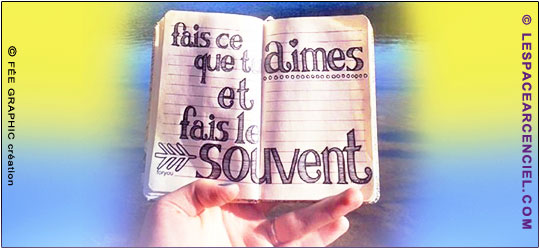 © FÉE GRAPHIC création
fais ce
que tu aimes
et
fais le
souvent
foryou
© LESPACEARCENCIEL.COM